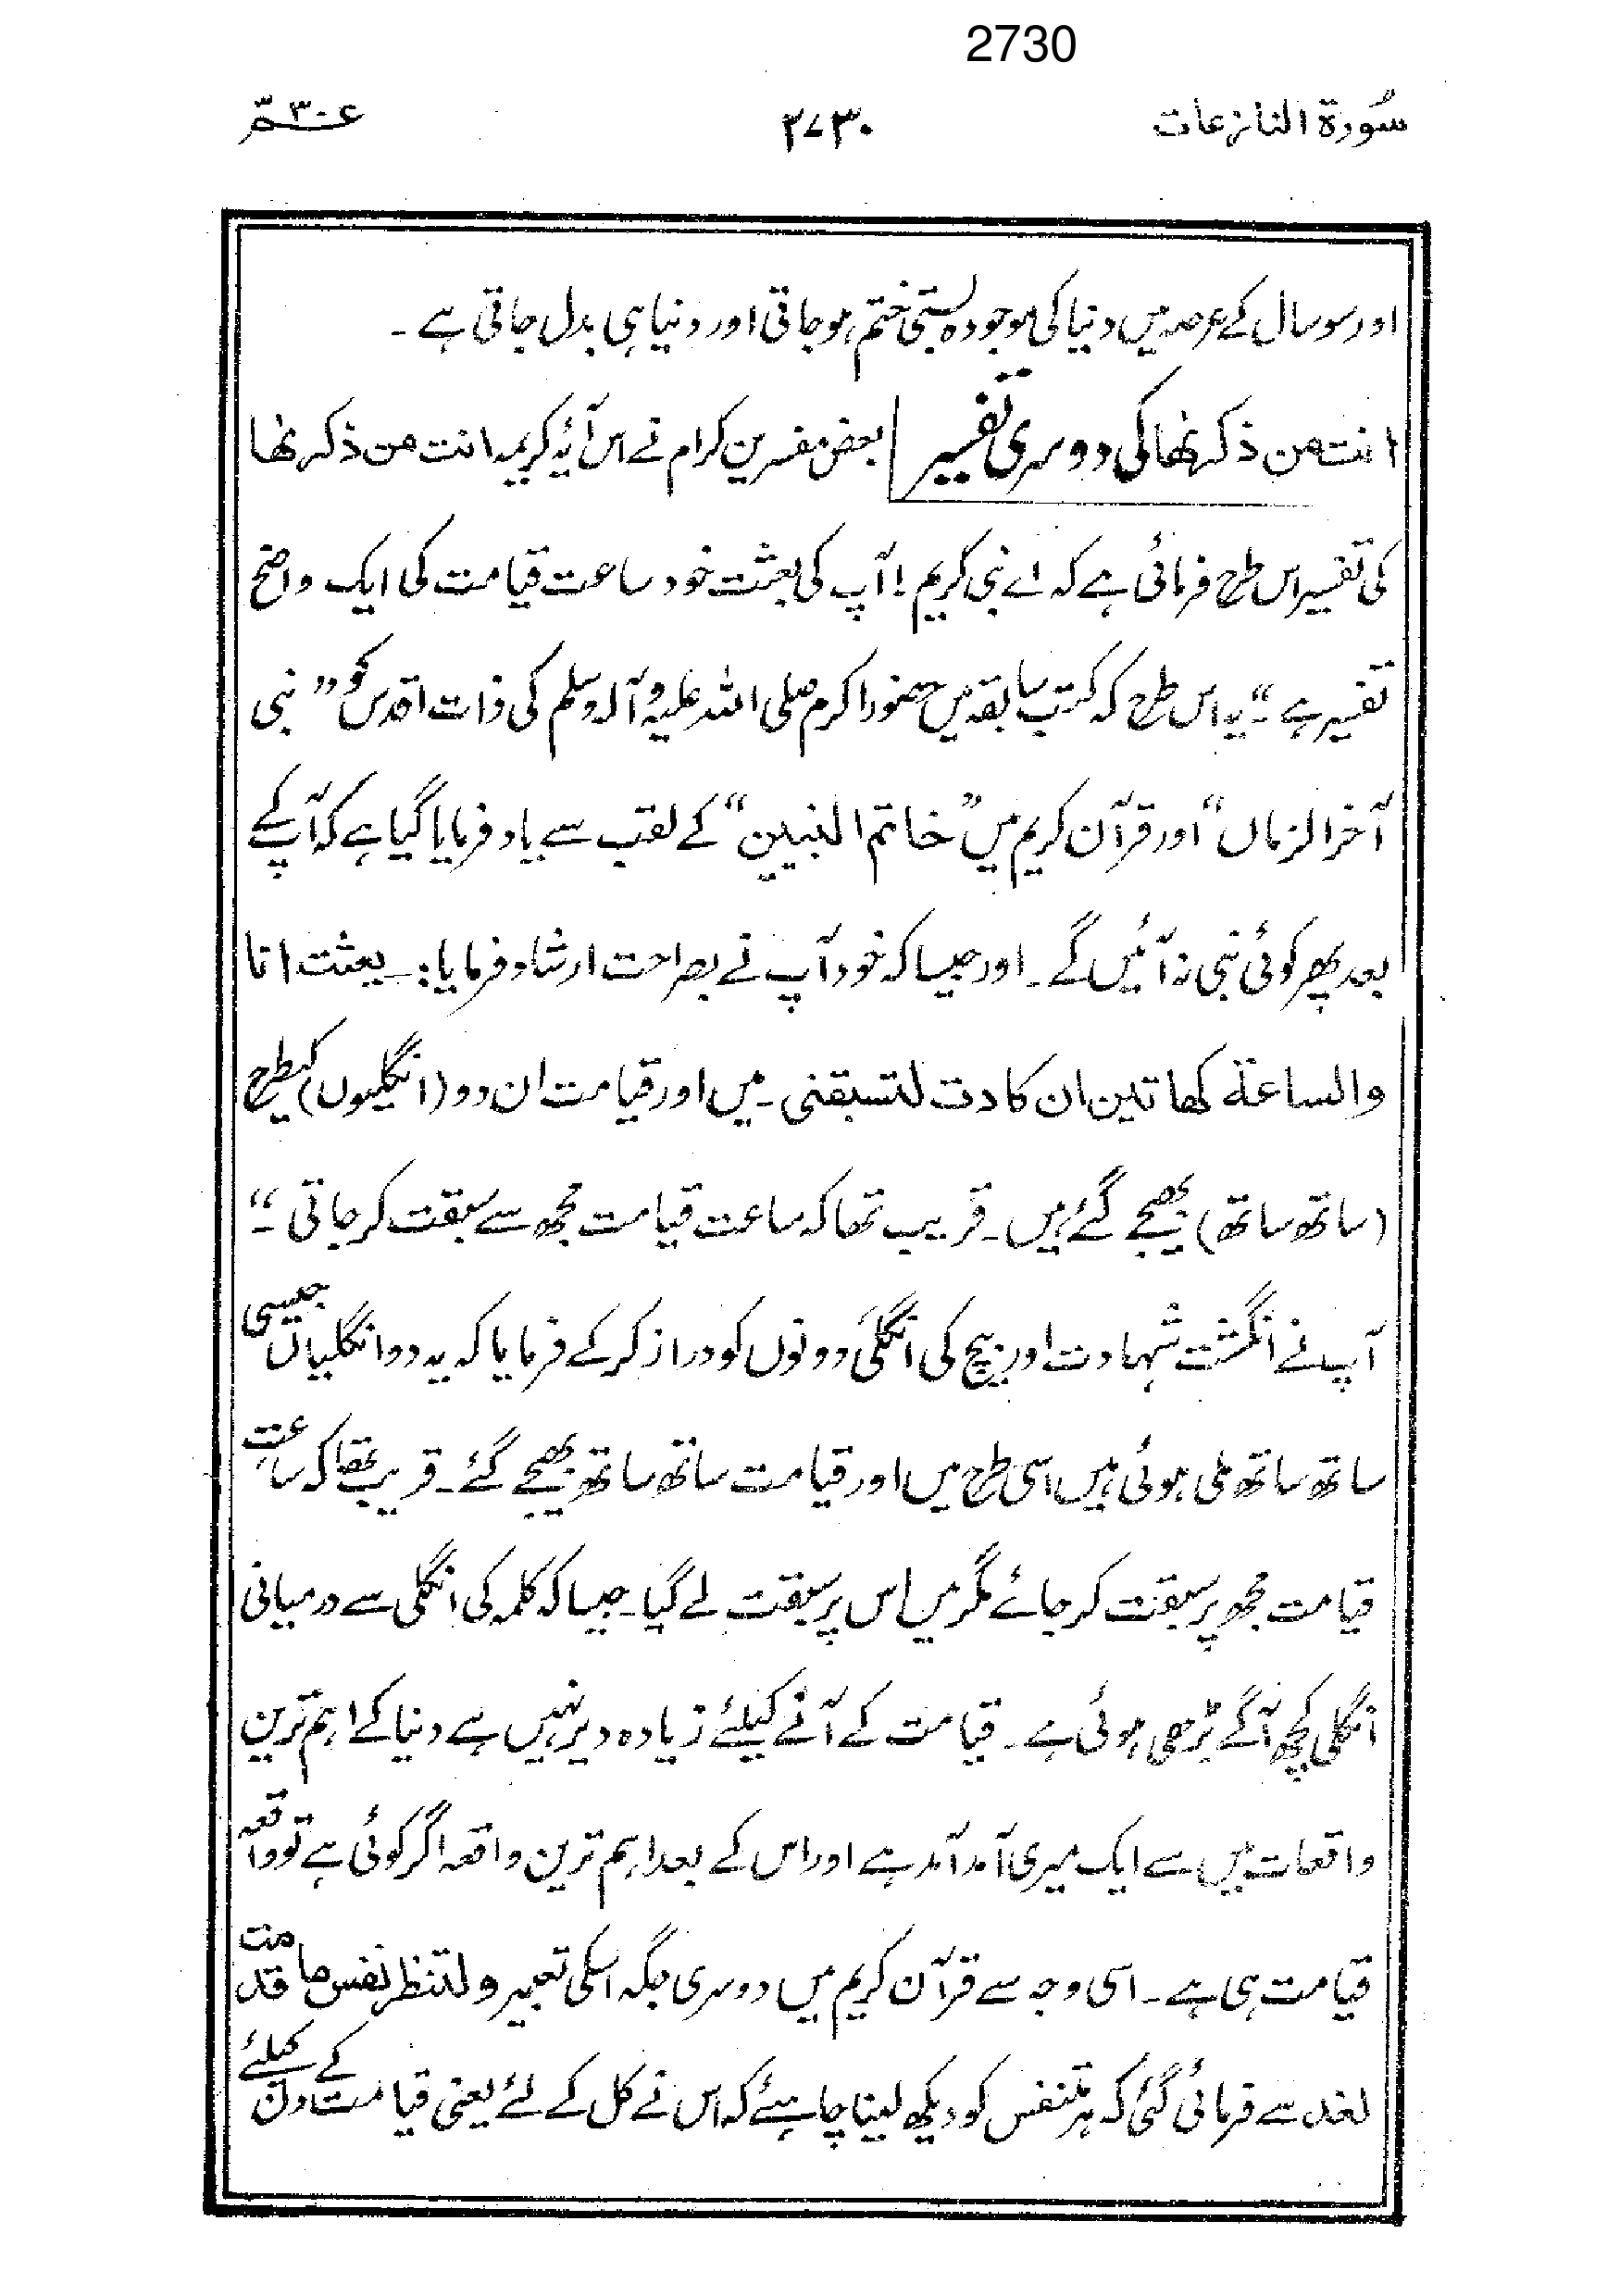 2730
سُورة النازعات ۲۷۳۰ عم ۳۰
اور سو سال کے عرصہ میں دنیا کی موجودہ بستی ختم ہو جاتی اور دنیا ہی بدل جاتی ہے ۔
انت من ذکرٰھا کی دوسری تفسیر بعض مفسرین کرام نے اس آیۂ کریمہ انت من ذکرٰھا
کی تفسیر اس طرح فرمائی ہے کہ اے نبی کریم ! آپ کی بعثت خود ساعت قیامت کی ایک واضح
تفسیر ہے ۔“ یہ اس طرح کہ کتب سابقہ میں حضور اکرم صلی اللہ علیہ وآلہ وسلم کی ذات اقدس کو ”نبی
آخر الزماں“ اور قرآن کریم میں ”خاتم النبیین“ کے لقب سے یاد فرمایا گیا ہے کہ آپ کے
بعد پھر کوئی نبی نہ آئیں گے ۔ اور جیسا کہ خود آپ نے بصراحت ارشاد فرمایا :۔ بعثت انا
والساعۃ کھاتین ان کادت لتسبقنی ۔ میں اور قیامت ان دو (انگلیوں) کیطرح
(ساتھ ساتھ) بھیجے گئے ہیں ۔ قریب تھا کہ ساعت قیامت مجھ سے سبقت کر جاتی ۔“
آپ نے انگشت شہادت اور بیچ کی انگلی دونوں کو دراز کر کے فرمایا کہ یہ دو انگلیاں جیسی
ساتھ ساتھ ملی ہوئی ہیں اسی طرح میں اور قیامت ساتھ ساتھ بھیجے گئے ۔ قریب تھا کہ ساعت
قیامت مجھ پر سبقت کر جائے مگر میں اس پر سبقت لے گیا ۔ جیسا کہ کلمہ کی انگلی سے درمیانی
انگلی کچھ آگے بڑھی ہوئی ہے ۔ قیامت کے آنے کیلئے زیادہ دیر نہیں ہے دنیا کے اہم ترین
واقعات میں سے ایک میری آمد آمد ہے اور اس کے بعد اہم ترین واقعہ اگر کوئی ہے تو واقعہ
قیامت ہی ہے ۔ اسی وجہ سے قرآن کریم میں دوسری جگہ اسکی تعبیر ولتنظر نفس ما قدمت
لغد سے فرمائی گئی کہ ہر متنفس کو دیکھ لینا چاہیئے کہ اس نے کل کے لئے یعنی قیامت کے دن کیلئے